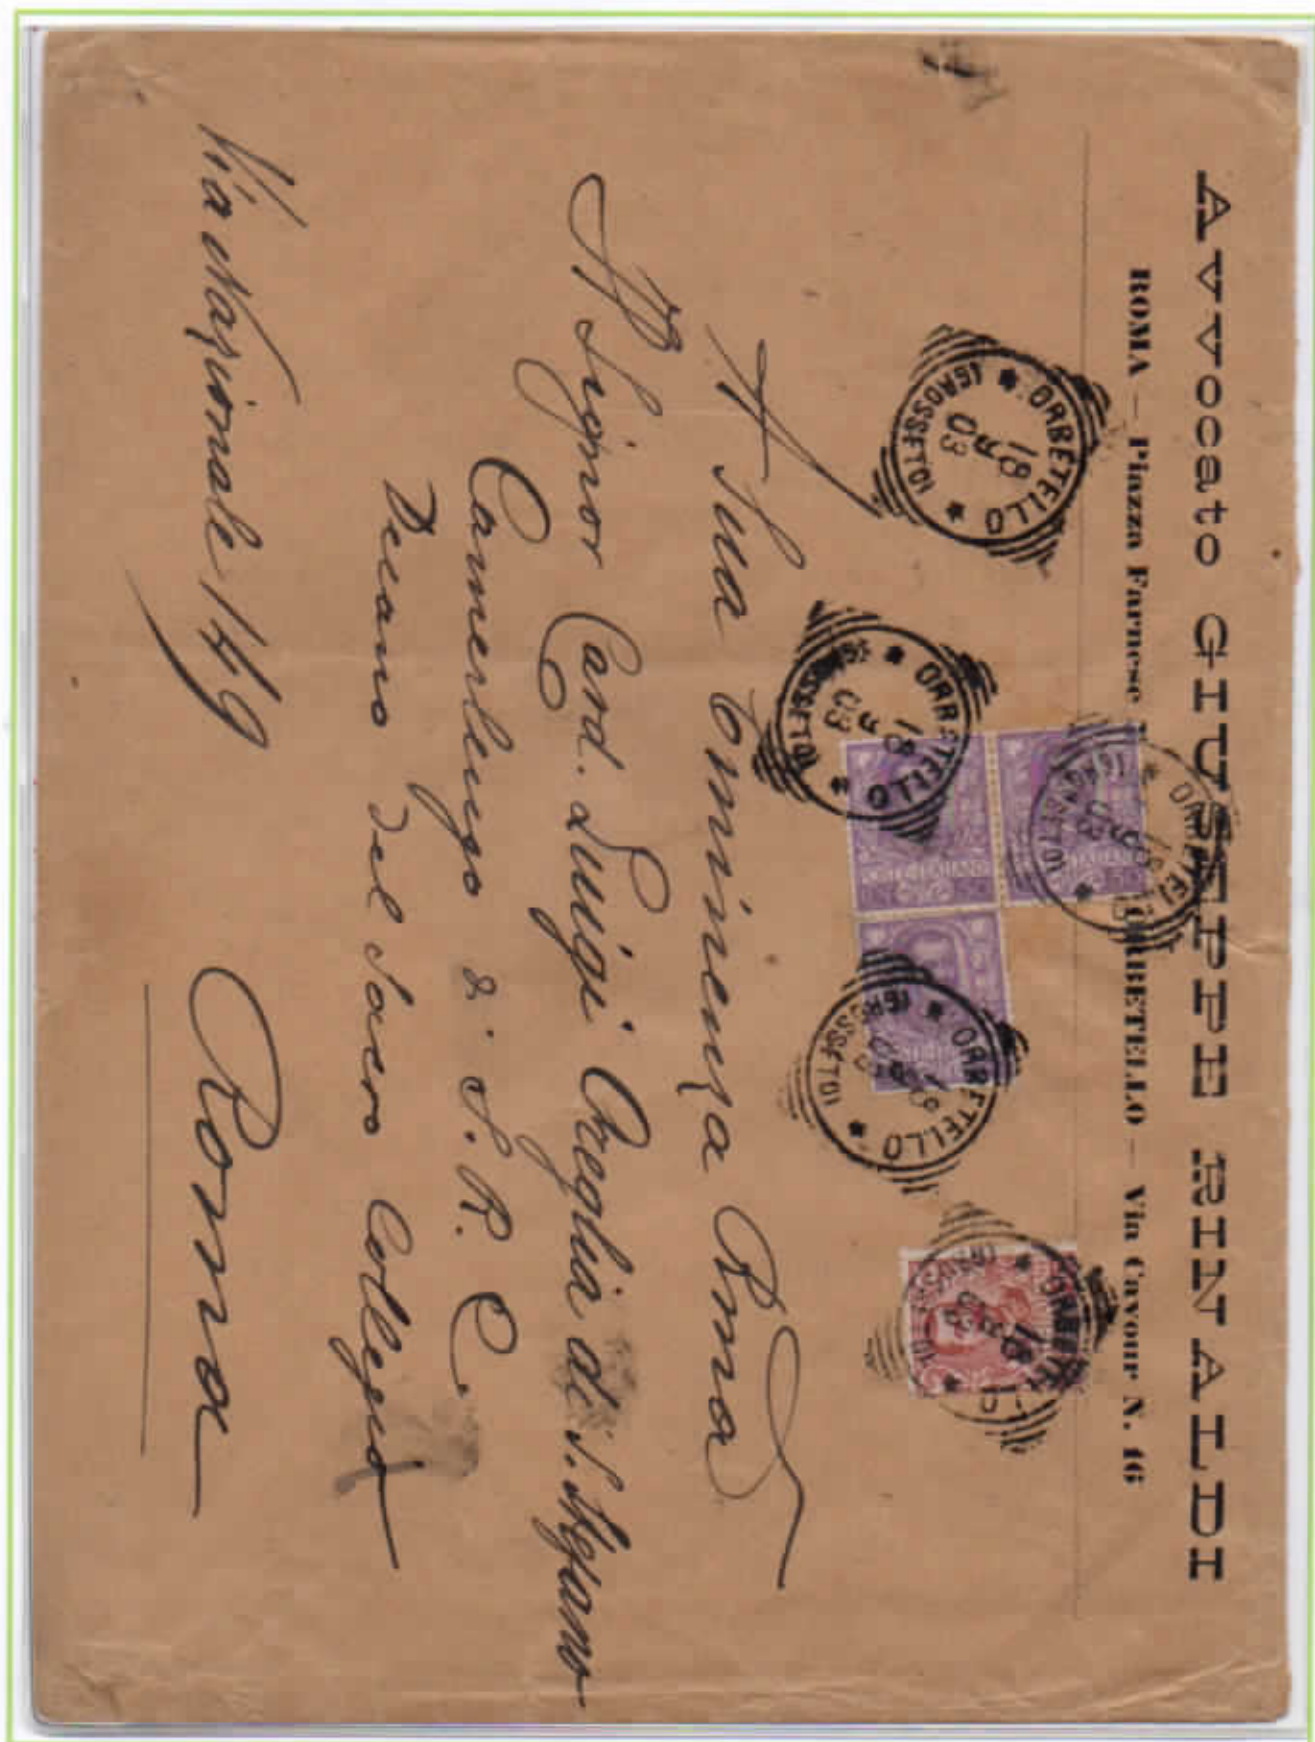 Avvocato GIUSEPPE RINALDI
ROMA — Piazza Farnese ORBETELLO — Via Cavour N. 16
ORBETELLO (GROSSETO) 18 03
ORBETELLO (GROSSETO) 18 03
ORBETELLO (GROSSETO)
ORBETELLO (GROSSETO)
ORBETELLO
POSTE ITALIANE 50
POSTE ITALIANE 50
A Sua Eminenza Rma
Il Signor Card. Luigi Oreglia di S. Stefano
Camerlengo di S. R. C.
Decano del Sacro Collegio
Roma
Via Nazionale 149